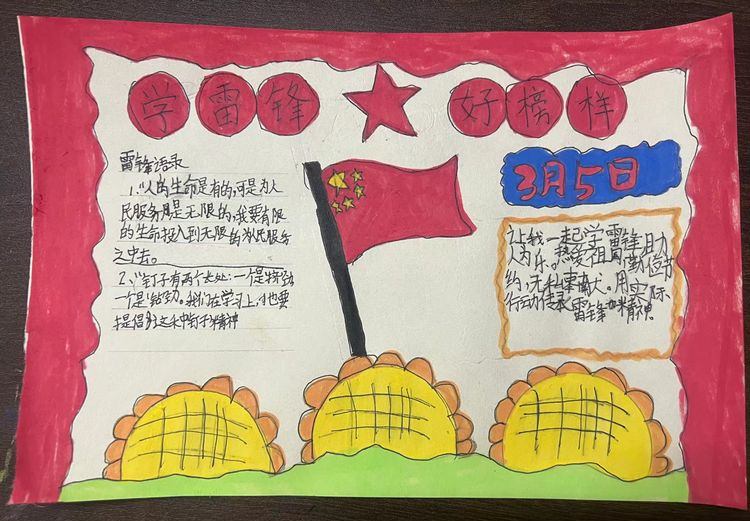 学雷锋★好榜样
雷锋语录
1、"人的生命是有的,可是为人
民服务是无限的,我要有限
的生命投入到无限的为民服务
之中去。
2、"钉子有两个长处:一个是挤劲
一个是钻劲。我们在学习上,也要
提倡这种钉子精神
3月5日
让我一起学雷锋,助
人为乐。热爱祖国,勤俭节
约,无私奉献大。用实际
行动传承雷锋精神。